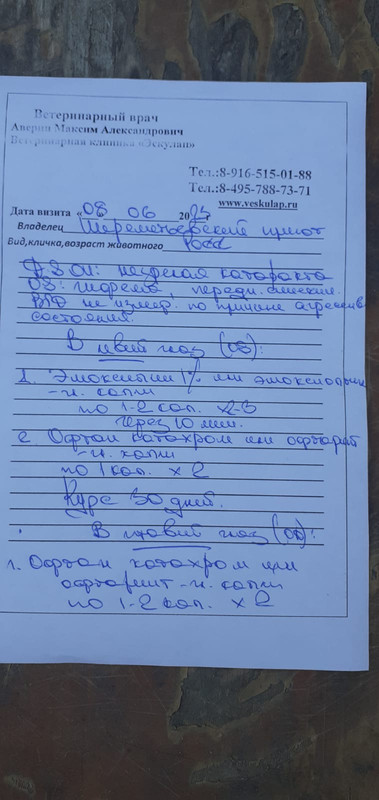 Ветеринарный врач
Аверин Максим Александрович
Ветеринарная клиника «Эскулап»
Тел.:8-916-515-01-88
Тел.:8-495-788-73-71
www.veskulap.ru
Дата визита «08 06 2025
Владелец Шереметьевский приют
Вид,кличка,возраст животного
OU: незрелая катаракта
OS: передн.
ВГД не измер. по причине агрессив.
состояния.
В левый глаз (OS):
1. Эмоксипин 1% или эмоксиоптик
-н. капли
по 1-2 кап. x2-3
Через 10 мин.
2. Офтан катахром или
-н. капли
по 1 кап. x2
Курс 30 дней.
В правый глаз (OD):
1. Офтан катахром или
-н. капли
по 1-2 кап. x2